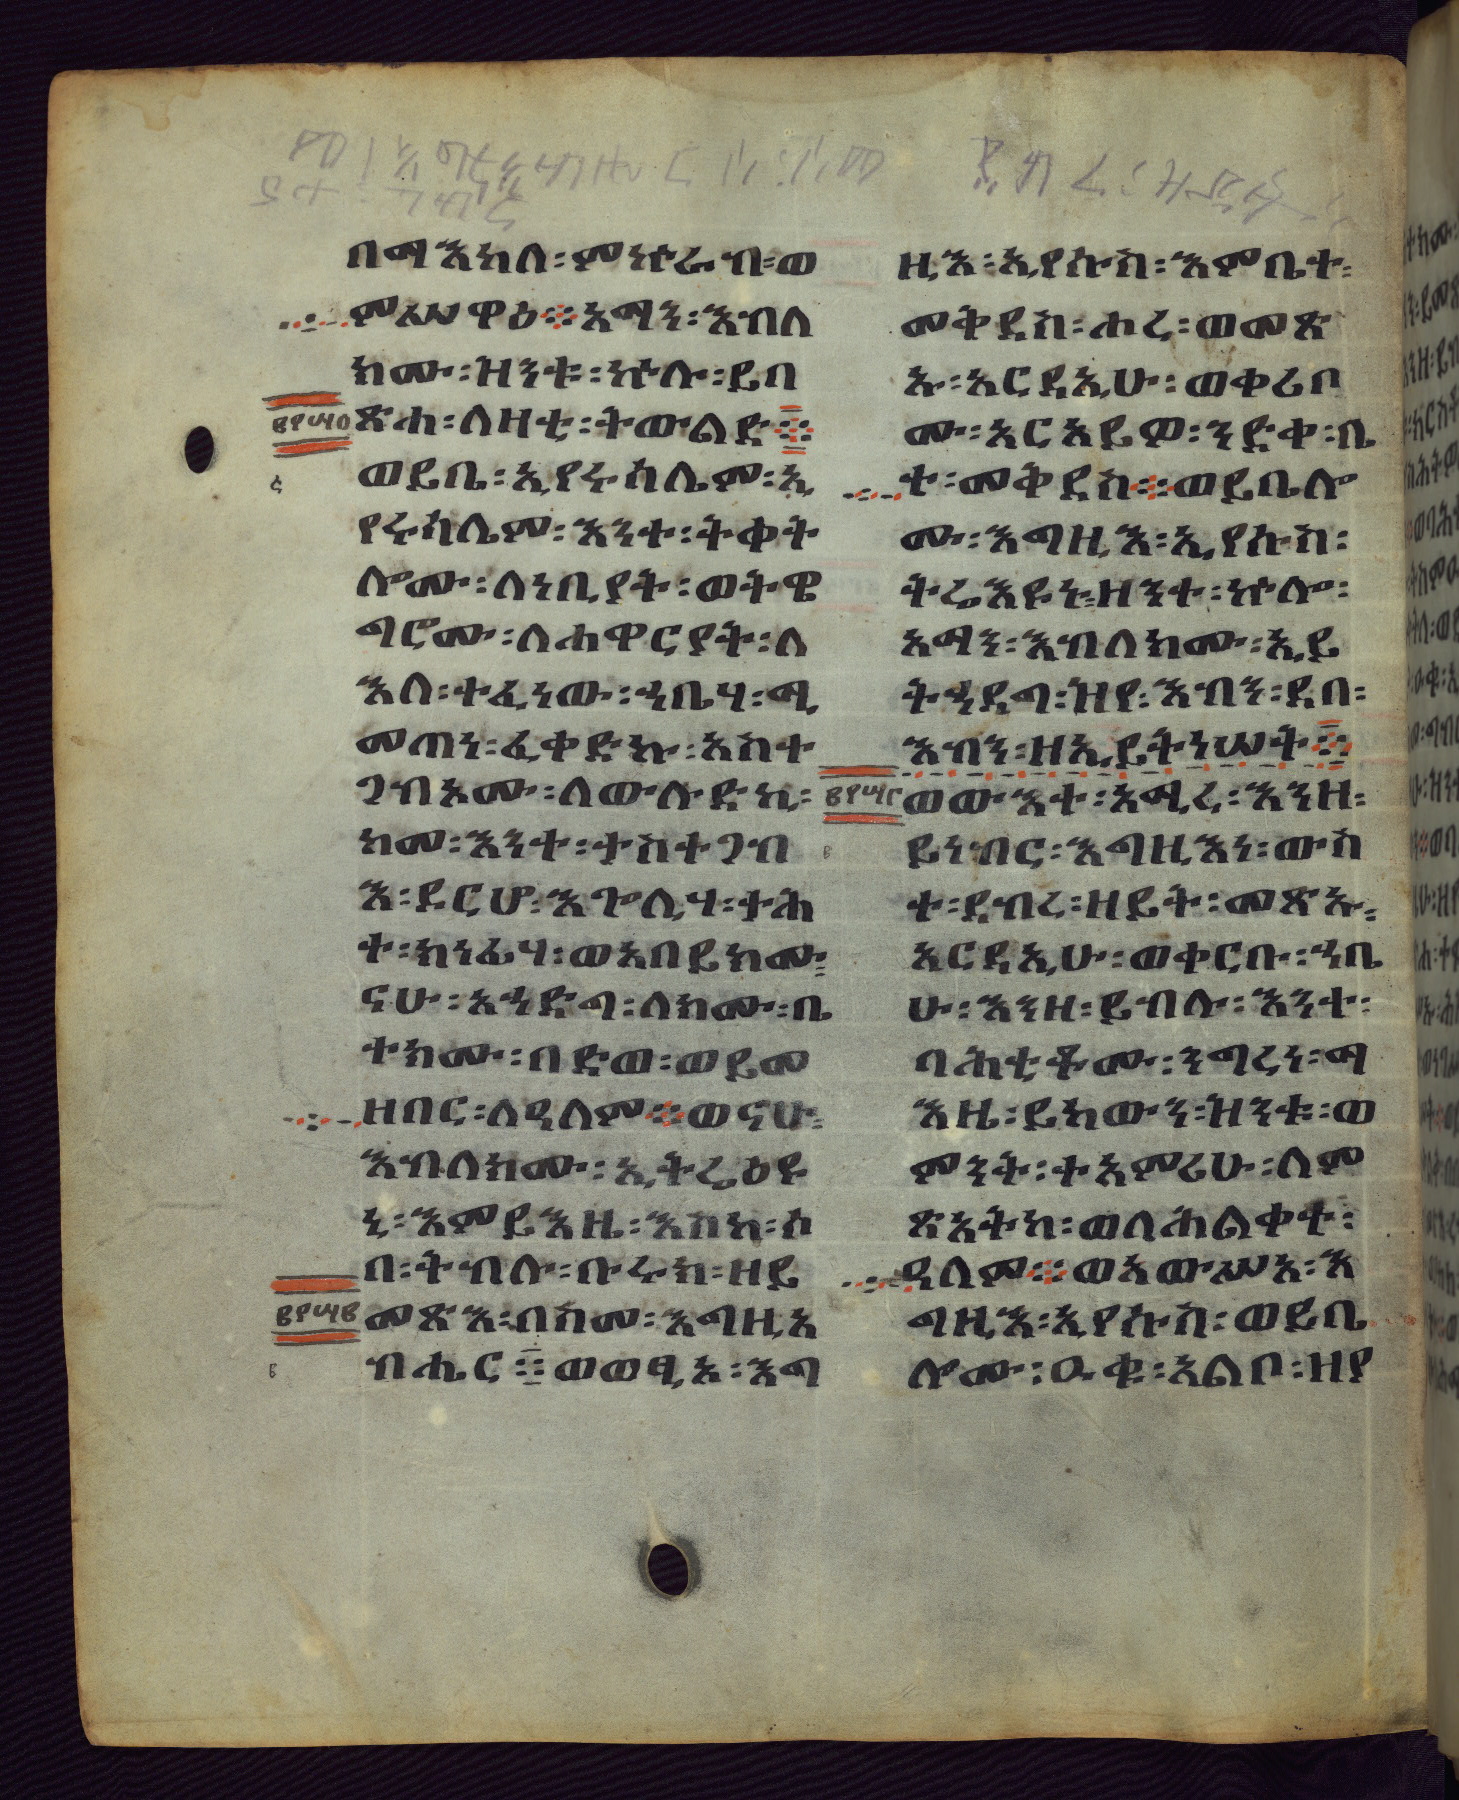 በማእከለ፡ምኵራብ፡ወ
ምሥዋዕ፨አማን፡እብለ
ክሙ፡ዝንቱ፡ኵሉ፡ይበ
ጽሐ፡ለዛቲ፡ትውልድ፨
ወይቤ፡ኢየሩሳሌም፡ኢ
የሩሳሌም፡እንተ፡ትቀት
ሎሙ፡ለነቢያት፡ወትዌ
ግሮሙ፡ለሐዋርያት፡ለ
እለ፡ተፈነው፡ኀቤሃ፡ሚ
መጠነ፡ፈቀድኩ፡አስተ
ጋብኦሙ፡ለውሉድኪ፡
ከመ፡እንተ፡ታስተጋብ
እ፡ዶርሆ፡እጐሊሃ፡ታሕ
ተ፡ክነፊሃ፡ወአበይክሙ፡
ናሁ፡አኀድግ፡ለክሙ፡ቤ
ተክሙ፡በድወ፡ወይመ
ዘበር፡ለዓለም፨ወናሁ፡
እብለክሙ፡ኢትሬዕዩ
ኒ፡እምይእዜ፡እስከ፡ሶ
በ፡ትብሉ፡ቡሩክ፡ዘይ
፪፻፵፪
መጽእ፡በስመ፡እግዚአ
ብሔር፨ወወፂኦ፡እግ
ዚእ፡ኢየሱስ፡እምቤተ፡
መቅደስ፡ሖረ፡ወመጽ
ኡ፡አርዳኢሁ፡ወቀረቡ
ሙ፡አርአይዎ፡ንድቀ፡ቤ
ተ፡መቅደስ፨ወይቤሎ
ሙ፡እግዚእ፡ኢየሱስ፡
ትሬእዩኑ፡ዘንተ፡ኵሎ፡
አማን፡እብለክሙ፡ኢይ
ትኀደግ፡ዝየ፡እብን፡ዲበ፡
እብን፡ዘኢይትነሠት፨
፪፻፵፫
ወውእቱ፡አሚረ፡እንዘ፡
ይነብር፡እግዚእነ፡ውስ
ተ፡ደብረ፡ዘይት፡መጽኡ፡
አርዳኢሁ፡ወቀርቡ፡ኀቤ
ሁ፡እንዘ፡ይብሉ፡እንተ፡
ባሕቲቶሙ፡ንግረነ፡ማ
እዜ፡ይከውን፡ዝንቱ፡ወ
ምንት፡ተአምሪሁ፡ለም
ጽአትከ፡ወለሕልቀተ፡
ዓለም፨ወአውሥአ፡እ
ግዚእ፡ኢየሱስ፡ወይቤ
ሎሙ፡ዑቁ፡አልቦ፡ዘየ